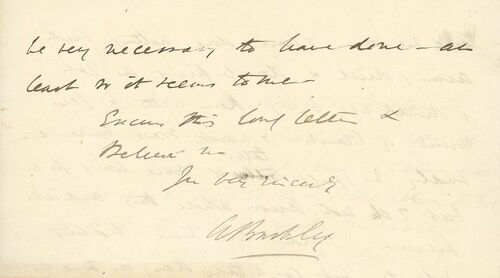 be very necessary to have done – at
least so it seems to me –
Excuse this long letter &
Believe me
Yrs very sincerely